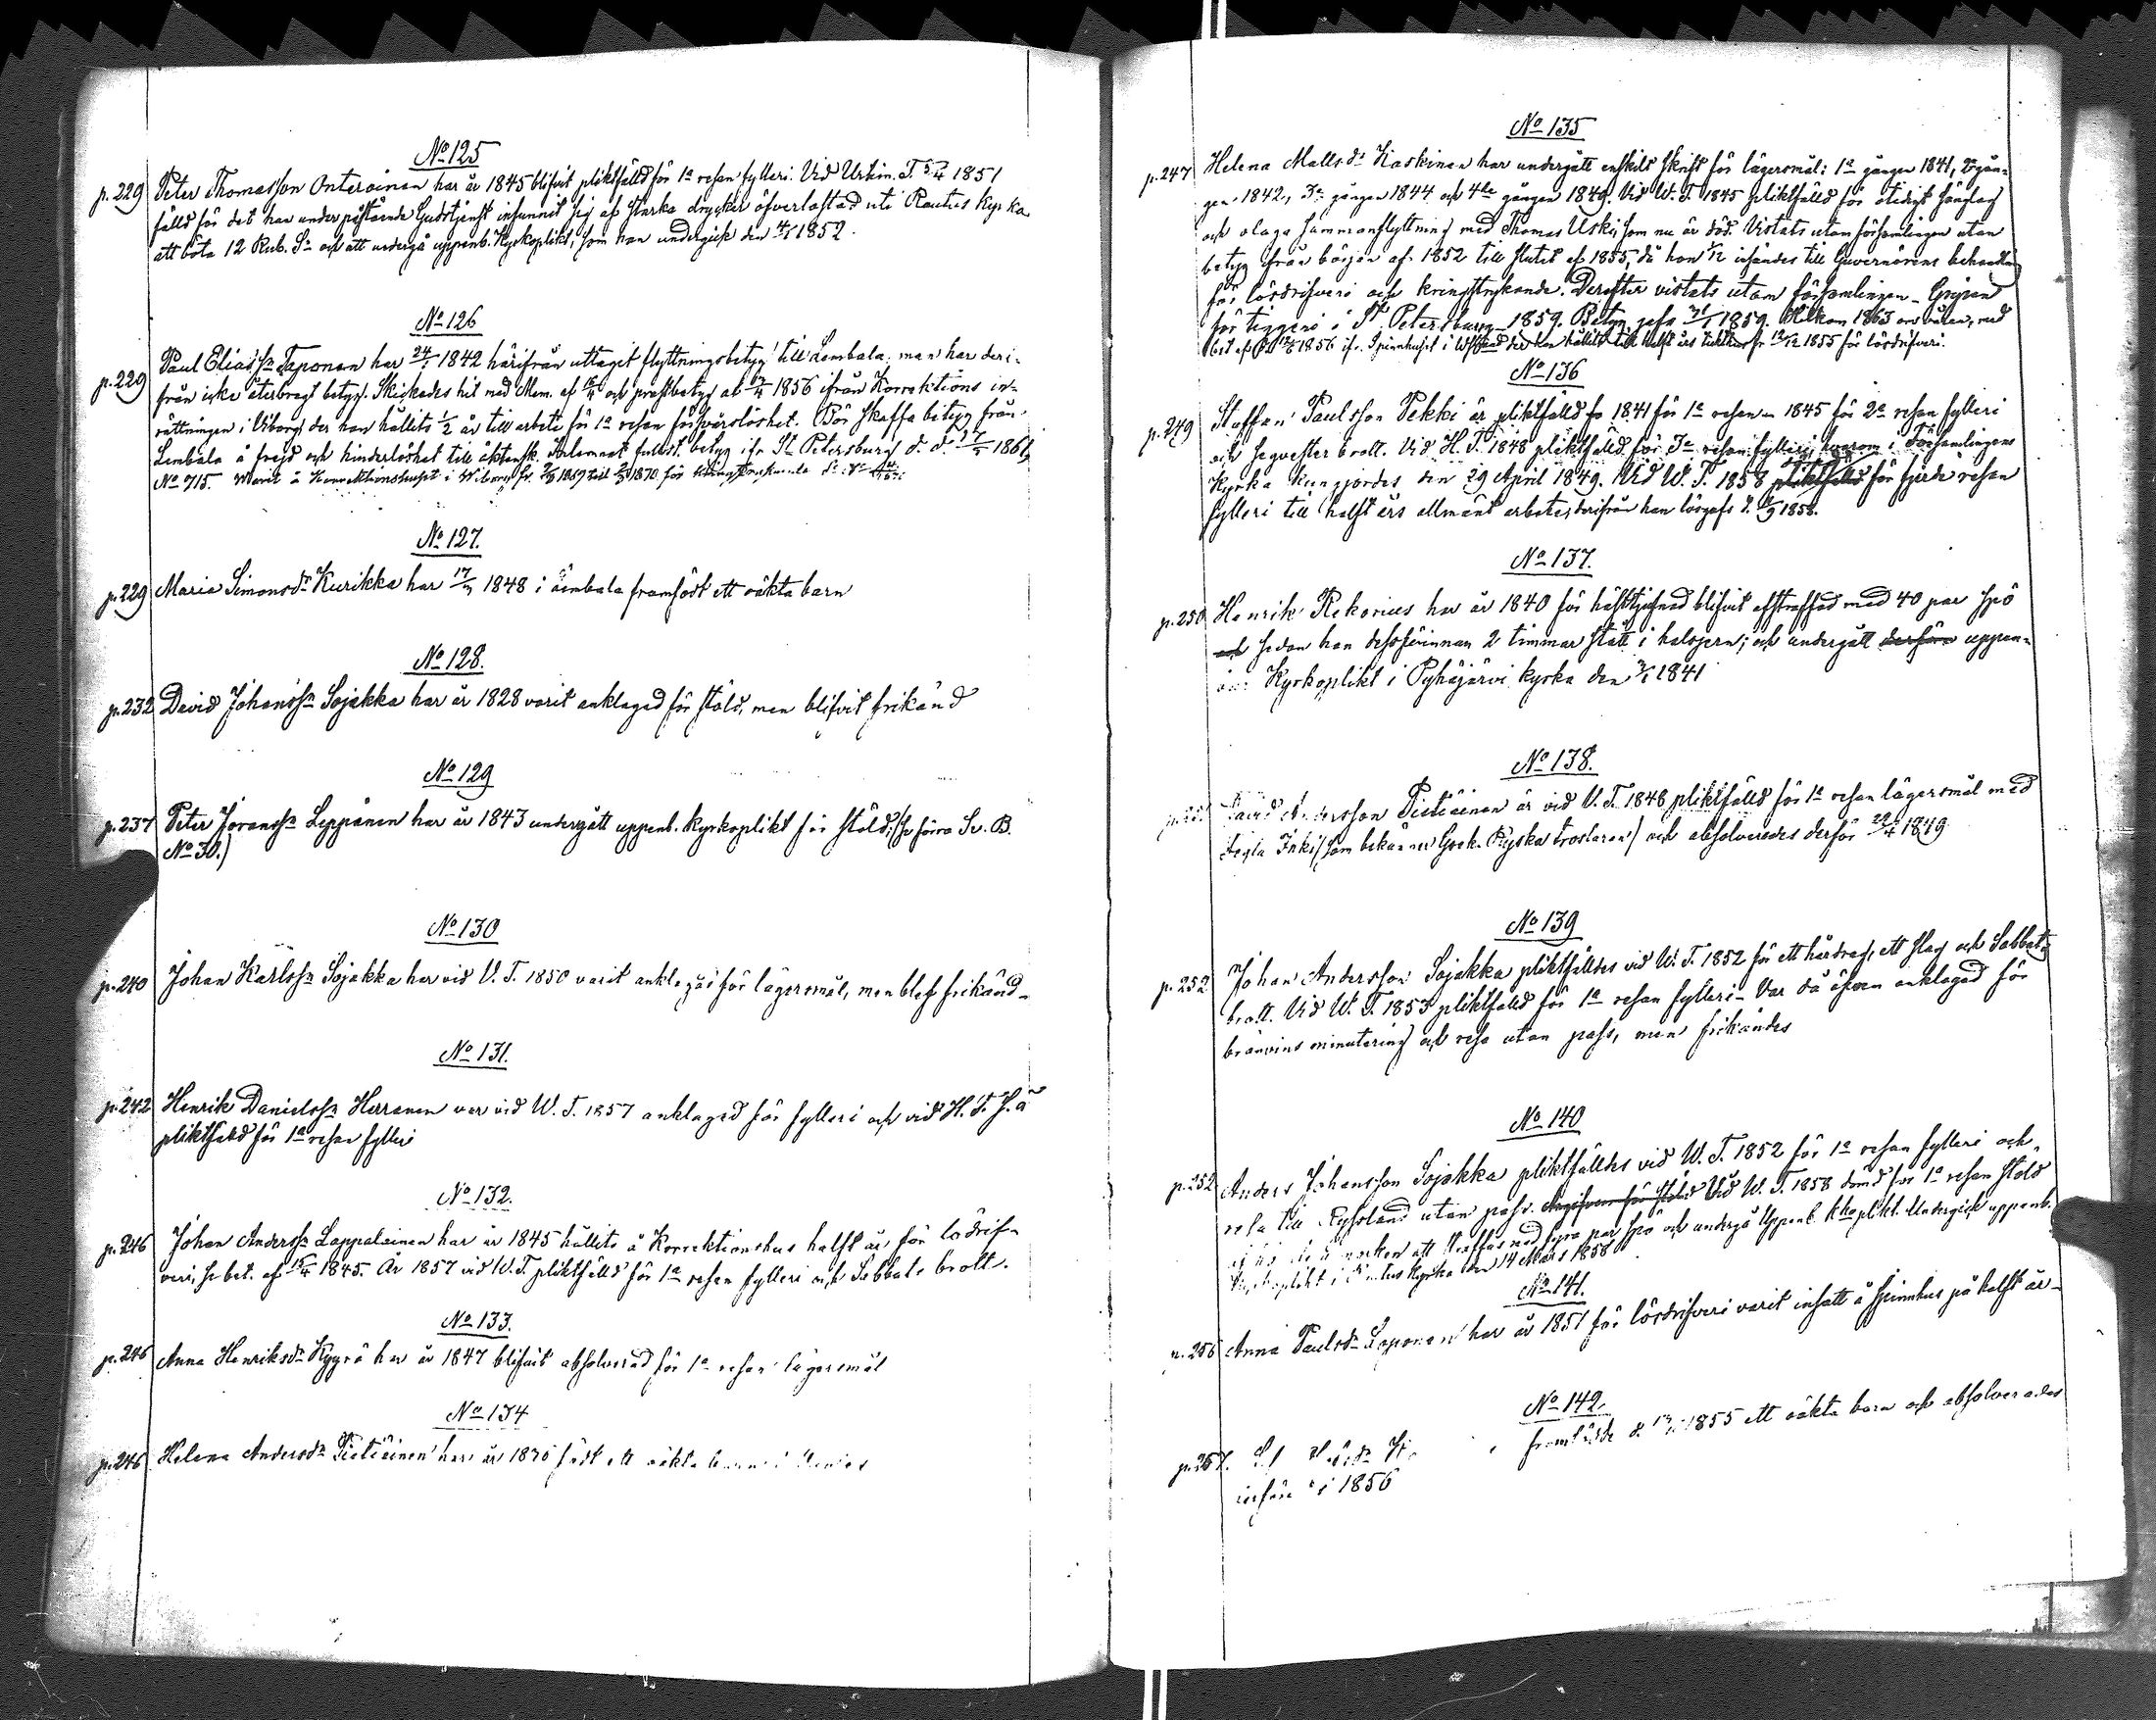 No 125
p. 229 Peter Thomasson Onteroinen har år 1845 blifvit pliktfälld för 1a resan fylleri. Vid Urtim. T. 5/4 1851
fälld för det han under påstående Gudstjenst infunnit sig af starka drycker öfverlastad uti Rautus kyrka
att böta 12 Rub. Sr och att undergå uppenb. Kyrkoplikt, som han undergick den 4/1 1852.
No 126
p. 229 Paul Eliass: Taponen har 24/ 1842 härifrån uttaget flyttningsbetyg till Lembala, men har deri-
från icke återbragt betyg. Skickades hit med Mem. af och prestbetyg af 1856 ifrån Korrektions in-
rättningen i Viborg der han hållits 1/2 år till arbete för 1a resan försvarslöshet. Bör skaffa betyg från
Lembala å frejd och hinderlöshet till äktensk. Inlemnat fullst. betyg ifr. St Petersburg d. d. 1861,
No 715. Warit å Korrektionshuset i Wiborg fr. 1869 till 1870 för kringstrykande
No 127.
p. 229 Maria Simonsdr Kurikka har 17/ 1848 i Lembala framfödt ett oäkta barn
No 128.
p. 232 David Johanss: Sojakka har år 1828 varit anklagad för stöld, men blifvit frikänd
No 129
p. 237 Peter Jöranss: Leppänen har år 1843 undergått uppenb. kyrkoplikt för stöld, (se förra Sv. B.
No 30.)
No 130
p. 240 Johan Karlss: Sojakka har vid V. T. 1850 varit anklagad för lägersmål, men blef frikänd-
No 131.
p. 242 Henrik Danielss: Herranen var vid W. T. 1857 anklagad för fylleri och vid H. T. s. å
pliktfälld för 1a resan fylleri
No 132.
p. 246 Johan Anderss: Lappalainen har år 1845 hållits å Korrektionshus halft år, för lösdrif-
veri, se bet. af 15/4 1845. År 1857 vid W. T. pliktfälld för 1a resan fylleri och Sabbats brott.
No 133.
p. 246 Anna Henriksdr Kyyrö har år 1847 blifvit absolverad för 1a resan lägersmål
No 134
p. 246 Helena Andersdr Pietiäinen har år 18 födt ett oäkta barn i
No 135
p. 247 Helena Mattsdr Kaskinen har undergått enskilt skrift för lägersmål: 1a gången 1841, 2a gån-
gen 1842, 3e gången 1844 och 4de gången 1849. Vid W. T. 1845 pliktfälld för otidigt sänglag
och olaga sammanflyttning med Thomas Uski, som nu är död. Vistats utom församlingen utan
betyg ifrån början af 1852 till slutet af 1855, då hon insändes till Guvernörens behandling
för lösdrifveri och kringstrykande. Derefter vistats utom församlingen - Gripen
för tiggeri i St. Petersburg 1859. Betyg gafs 1859. Återkom 1863 om våren, med
bet. af 1856 ifr. Spinnhuset i Wstrand der hon hållits till halft års tukt fr 12/12 1855 för lösdrifveri.
No 136
p. 249 Staffan Paulsson Pekki är pliktfälld fr 1841 för 1a resan 1845 för 2a resan fylleri
och begrefter brott. Vid H. T. 1848 pliktfälld för 3e resan fylleri, hvarom i Församlingens
Kyrka kungjordes den 29 April 1849. Vid W. T. 1858 pliktfälld för fjerde resan
fylleri till halft års allmänt arbete, derifrån han lösgafs d. 1858.
No 137.
p. 250 Henrik Rekorius har år 1840 för hästtjufnad blifvit afstraffad med 40 par spö
och sedan han dessförinnan 2 timmar stått i halsjern; och undergått derföre uppen-
bar Kyrkoplikt i Pyhäjärvi kyrka den 3/1 1841
No 138.
David Andersson Pietiäinen är vid V. T. 1848 pliktfälld för 1a resan lägersmål med
Tegla Inki (som bekänner Grek. Ryska trosläran) och absolverades derför 29/4 1849
No 139
p. 252 Johan Andersson Sojakka pliktfälldes vid W. T. 1852 för ett hårdrag, ett slag och Sabbats
brott. Vid W. T. 1853 pliktfälld för 1a resan fylleri - Var då äfven anklagad för
bränvins minutering och resa utan pass, men frikändes
No 140
p. 252 Anders Johansson Sojakka pliktfälldes vid W. T. 1852 för 1a resan fylleri och
resa till Ryssland utan pass. Angifven för stöld Vid W. T. 1858 dömd för 1a resan stöld
att straffas med fyra par spö och undergå Uppenb. kkoplikt. Undergick uppenb.
Kyrkoplikt i Rautus Kyrka den 14 Mars 1858
No 141.
p. 256 Anna Paulsdr Taponen har år 1851 för lösdrifveri varit insatt å spinnhus på halft år-
No 142.
p. 257. framfödde d. 1855 ett oäkta barn och absolverades
1856